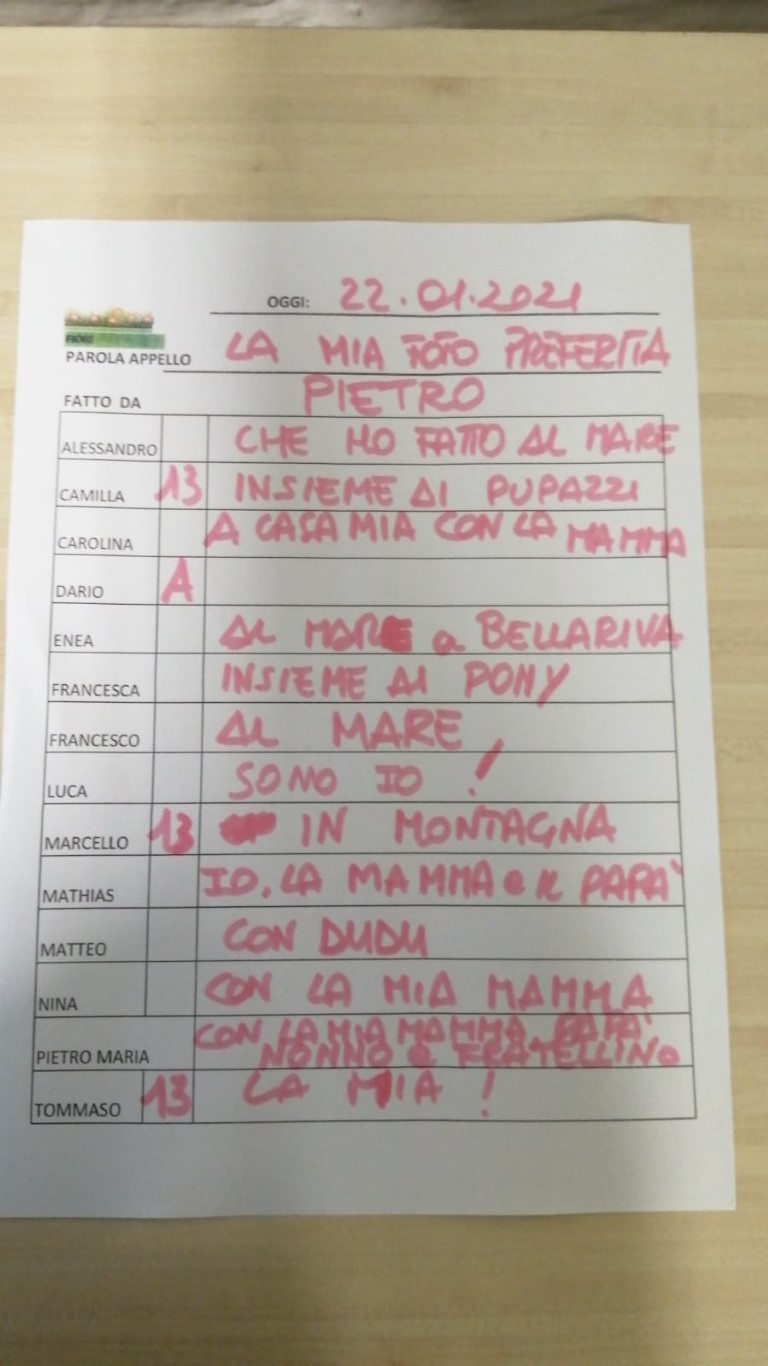 OGGI: 22.01.2021
FIORI
PAROLA APPELLO LA MIA FOTO PREFERITA
FATTO DA PIETRO
ALESSANDRO CHE HO FATTO AL MARE
CAMILLA 13 INSIEME AI PUPAZZI
CAROLINA A CASA MIA CON LA MAMMA
DARIO A
ENEA AL MARE a BELLARIVA
FRANCESCA INSIEME AI PONY
FRANCESCO AL MARE
LUCA SONO IO !
MARCELLO 13 IN MONTAGNA
MATHIAS IO, LA MAMMA e IL PAPA'
MATTEO CON DUDU
NINA CON LA MIA MAMMA
PIETRO MARIA CON LA MIA MAMMA PAPA'
NONNO e FRATELLINO
TOMMASO 13 LA MIA !